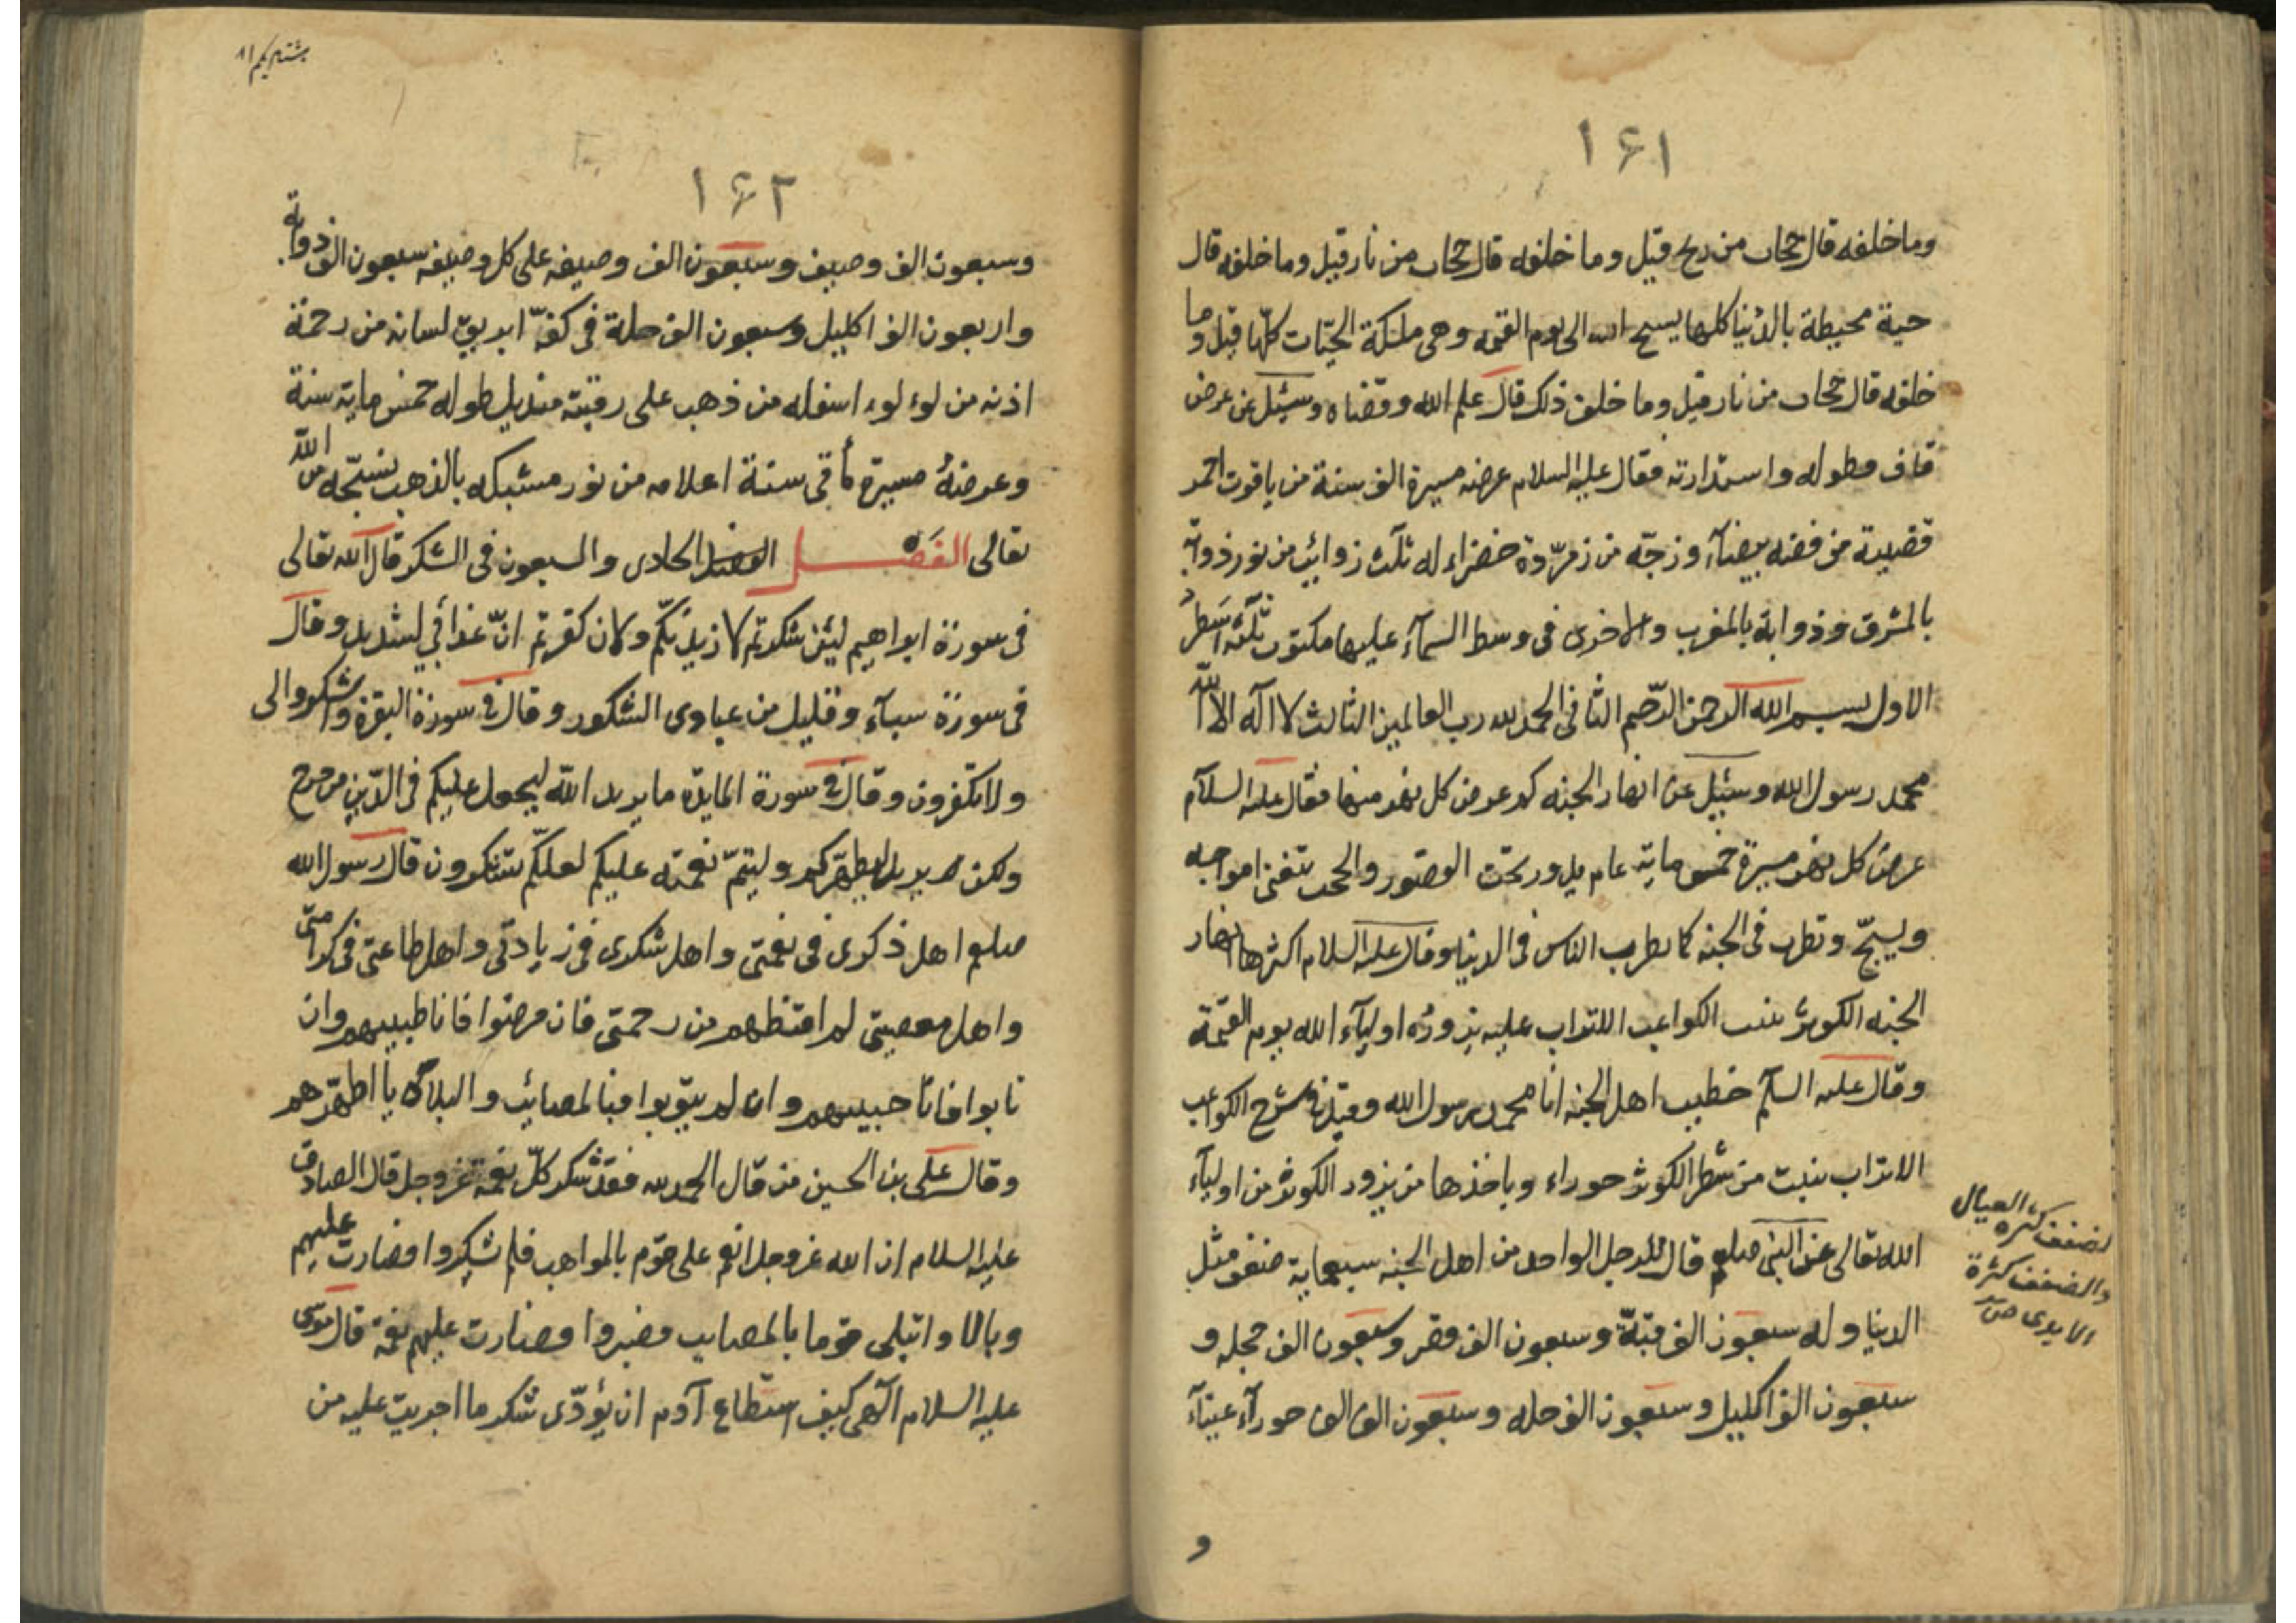 ۱۶۱
وما خلفه قال حجاب من ريح قيل وما خلفه قال حجاب من نار قيل وما خلفه قال
حية محيطة بالدنيا كلها يسبح الله الى يوم القيمه وهى ملكة الحيّات كلّها قيل وما
خلفه قال حجاب من نار قيل وما خلف ذلك قال علم الله وقضاه وسئيل عن عرض
قاف وطوله واستدارته فقال عليه السلام عرضه مسيرة الف سنة من ياقوت احمر
قضيبة من فضه بيضاۤء وزجّه من زمرّدة خضراء له ثلث زوائب من نور ذوابة
بالمشرق وذوابة بالمغرب والاخرى فى وسط السماۤء عليها مكتوب ثلثة اسطرُ
الاول بسم الله الرحمن الرّحيم الثانى الحمد لله رب العالمين الثالث لا اله الا الله
محمد رسول الله وسئيل عن انهار الجنه كم عرض كل نهر منها فقال عليه السلام
عرض كل نهر مسيرة خمس ماية عام يدور تحت القصور والحجب تتغنى امواجه
ويسبّح وتطرب فى الجنه كما يطرب الناس فى الدنيا وقال عليه السلام اكثرها انهار
الجنه الكوثر ينبت الكواعب اللتراب عليه يزوره اولياۤء الله يوم القيمة
وقال عليه السلم خطيب اهل الجنه انا محمد رسول الله وقيل فى شرح الكواعب
الاتراب ينبت من شطر الكوثر حوراء وياخذها من يزور الكوثر من اولياۤء
الله تعالى عن النبى صلعم قال للرجل الواحد من اهل الجنه سبعماية ضعف مثل
الدنيا وله سبعون الف قبّة وسبعون الف قصر وسبعون الف حجله و
سبعون الف اكليل وسبعون الف حله وسبعون الف الف حوراۤء عيناۤء
و
لضفف كثرة العيال
والضفف كثرة
الايدى ص
۱۶۲
وسبعون الف وصيف وسبعون الف وصيفه على كل وصيفه سبعون الف ذوابة
واربعون الف اكليل وسبعون الف حلة فى كفّه ابريق لسانه من رحمة
اذنه من لوء لوء اسفله من ذهب على رقبته منديل طوله خمس ماية سنة
وعرضهُ مسيرة مأتى سنة اعلامه من نور مشبكه بالذهب نسجه من الله
تعالى الفصل الحادى والسبعون فى الشكر قال الله تعالى
فى سورة ابراهيم ليئن شكرتم لازيدنكّم ولان كفرتم انّ عذابى لشديد وقال
فى سورة سباۤء وقليل من عبادى الشكور وقال فى سورة البقرة واشكروا لى
ولا تكفرون وقال فى سورة المايدة ما يريد الله ليجعل عليكم فى الدّين من حرج
ولكن يريد ليطهّركم وليتمّ نعمته عليكم لعلكّم تشكرون قال رسول الله
صلعم اهل ذكرى فى نعمتى واهل شكرى فى زيادتى واهل طاعتى فى كرامتى
واهل معصيتى لم اقنطهم من رحمتى فان مرضوا فانا طبيبهم وان
تابوا فانا حبيبهم وان لم يتوبوا فبالمصائب والبلايا اطهّرهم
وقال على بن الحسين من قال الحمد لله فقد شكر كلّ نعمة عز وجل قال الصادق
عليه السلام ان الله عز وجل انعم على قوم بالمواهب فلم يشكروا فصارت عليهم
وبالا وابتلى قوما بالمصايب فصبروا فصارت عليهم نعمة قال موسى
عليه السلام الهى كيف استطاع آدم ان يؤدّى شكر ما اجريت عليه من